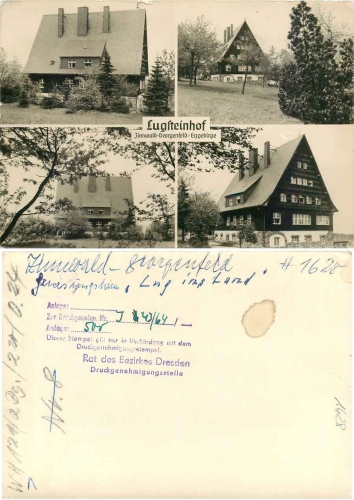 Lugsteinhof
Zinnwald-Georgenfeld - Erzgebirge
Zinnwald-Georgenfeld # 1628
"Lug ins Land"
Anlage:
Zur Genehmigung Nr. J 43/64/
Auflage: 500
Dieser Stempel gilt nur in Verbindung mit dem
Druckgenehmigungsstempel.
Rat des Bezirkes Dresden
Druckgenehmigungsstelle
Nr. 8
1628